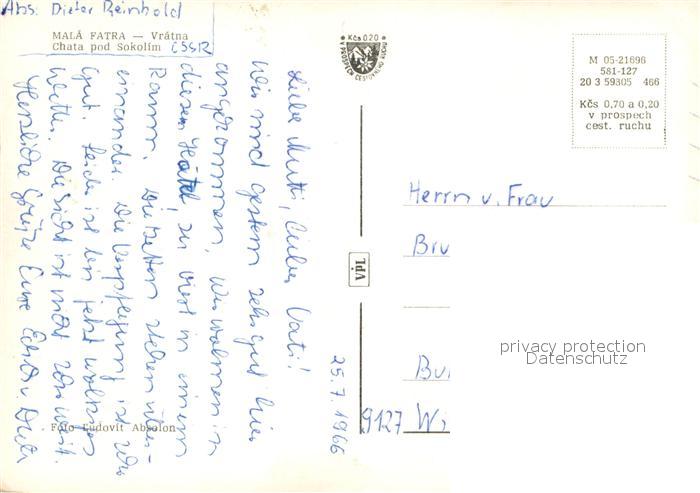 Abs: Dieter Reinhold
MALÁ FATRA — Vrátna
Chata pod Sokolím ČSSR
Liebe Mutti, lieber Vati!
Wir sind gestern sehr gut hier
angekommen, wir wohnen in
diesem Hotel, zu viert in einem
Raum. Die Betten stehen über-
einander. Die Verpflegung ist sehr
gut. Leider ist bis jetzt wolkiges
Wetter. Die Sicht ist nicht sehr weit.
Herzliche Grüße Eure
25.7.1966
Foto Ľudovít Absolon
★ Kčs 0.20 ★
V PROSPECH CESTOVNÉHO RUCHU
VPL
M 05-21696
581-127
20 3 59305 466
Kčs 0,70 a 0,20
v prospech
cest. ruchu
Herrn u. Frau
Bru
Bu
9127 Wi
privacy protection
Datenschutz